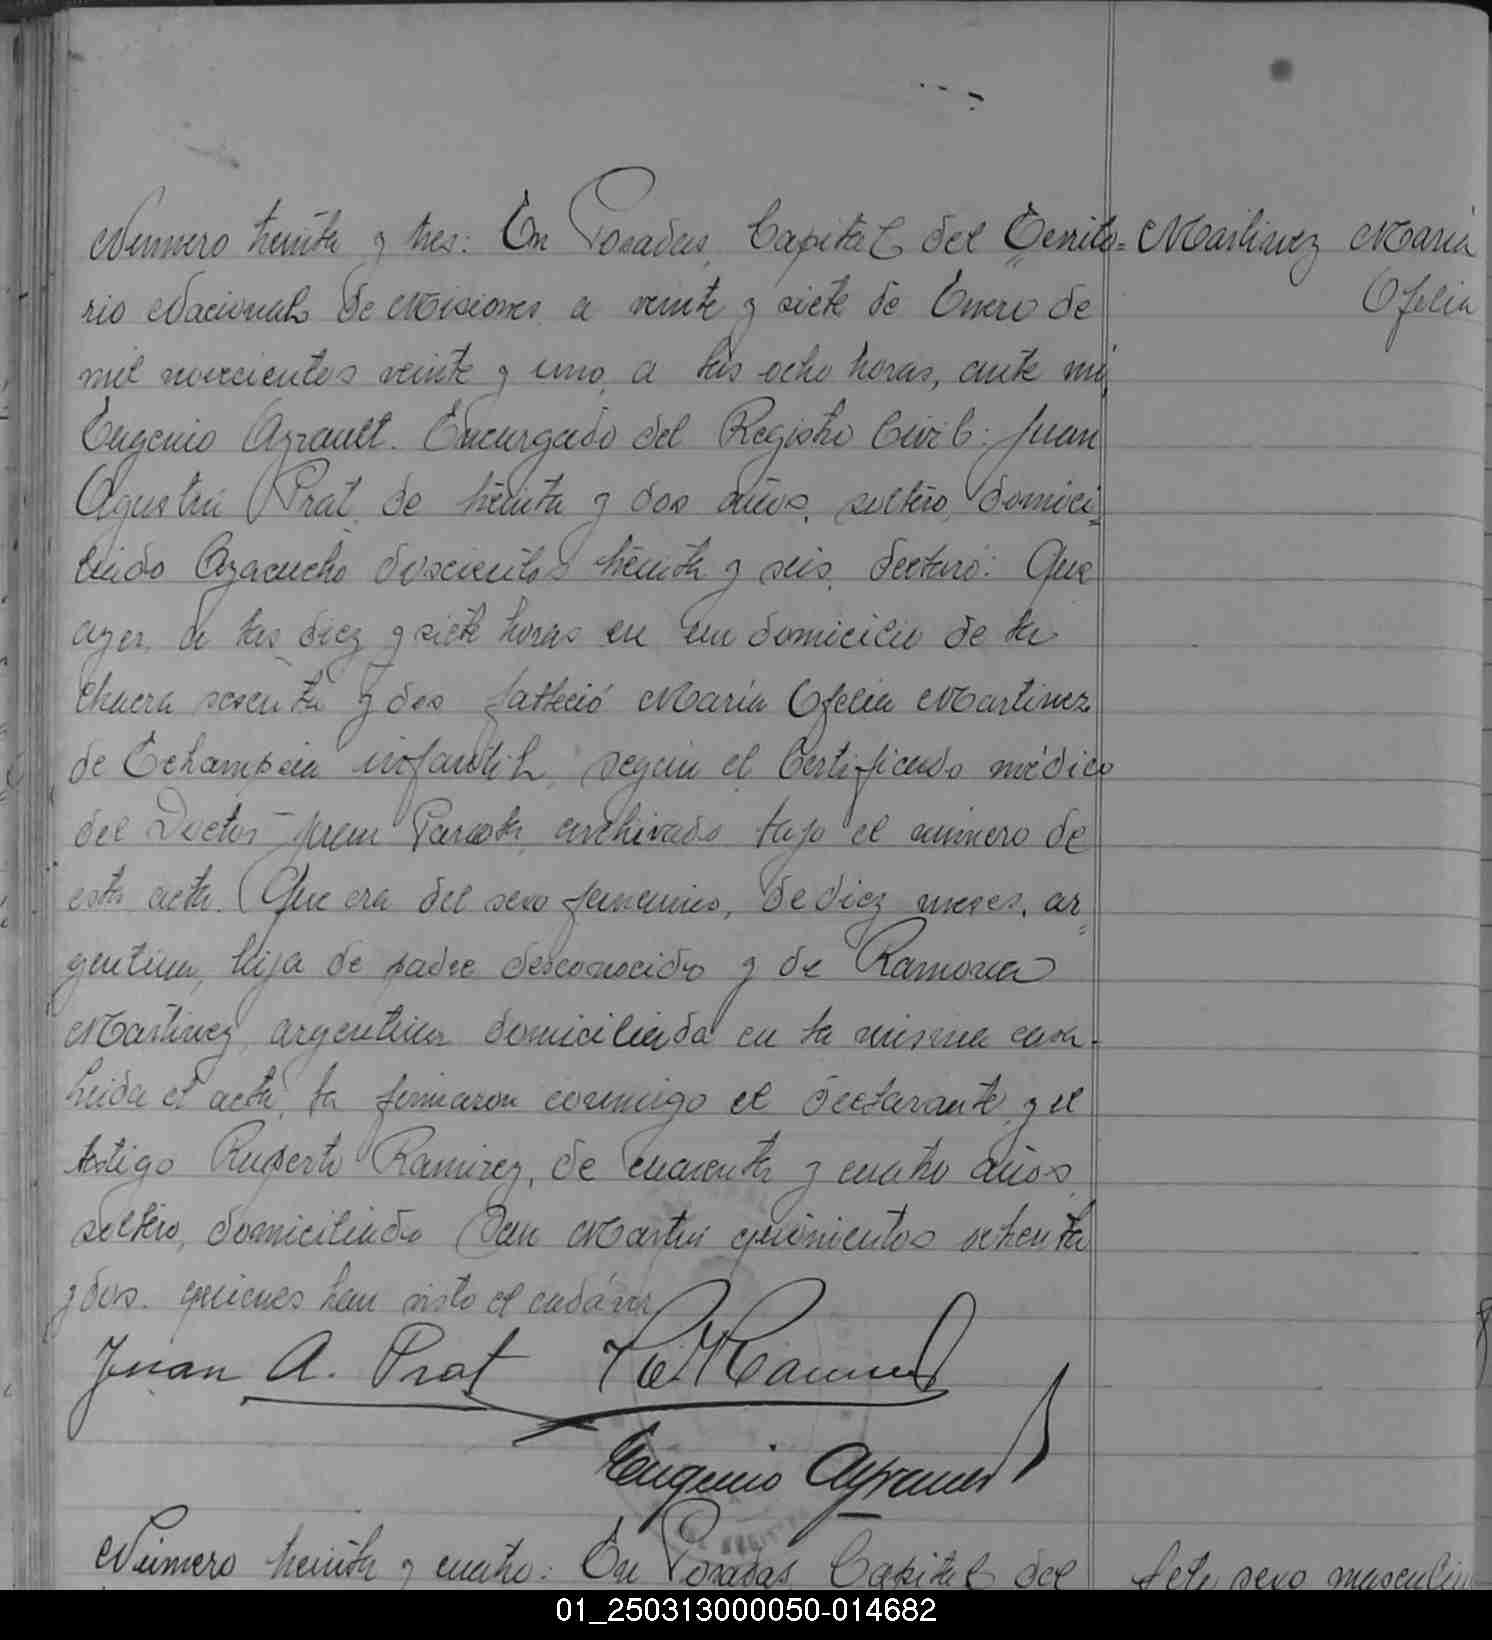 Numero treinta y tres: En Posadas, Capital del Territo= Martinez Maria
rio Nacional de Misiones, a veinte y siete de Enero de Ofelia
mil novecientos veinte y uno, a las ocho horas, ante mi,
Eugenio Ayrault. Encargado del Registro Civil: Juan
Agustin Prat, de treinta y dos años, soltero, domici=
liado Ayacucho doscientos treinta y seis, declaró: Que
ayer, a las diez y siete horas en su domicilio de la
chacra sesenta y dos falleció María Ofelia Martinez
de Eclampsia infantil, según el Certificado médico
del Doctor Juan archivado bajo el número de
esta acta. Que era del sexo femenino, de diez meses, ar=
gentina, hija de padre desconocido y de Ramona
Martinez, argentina domiciliada en la misma casa.
Leida el acta, la firmaron conmigo el declarante, y el
testigo Ruperto Ramirez, de cuarenta y cuatro años,
soltero, domiciliado San Martin quinientos ochenta
y dos. quienes han visto el cadáver
Juan A. Prat
Eugenio Ayrault
Número treinta y cuatro: En Posadas, Capital del Feto sexo masculin
01_250313000050-014682